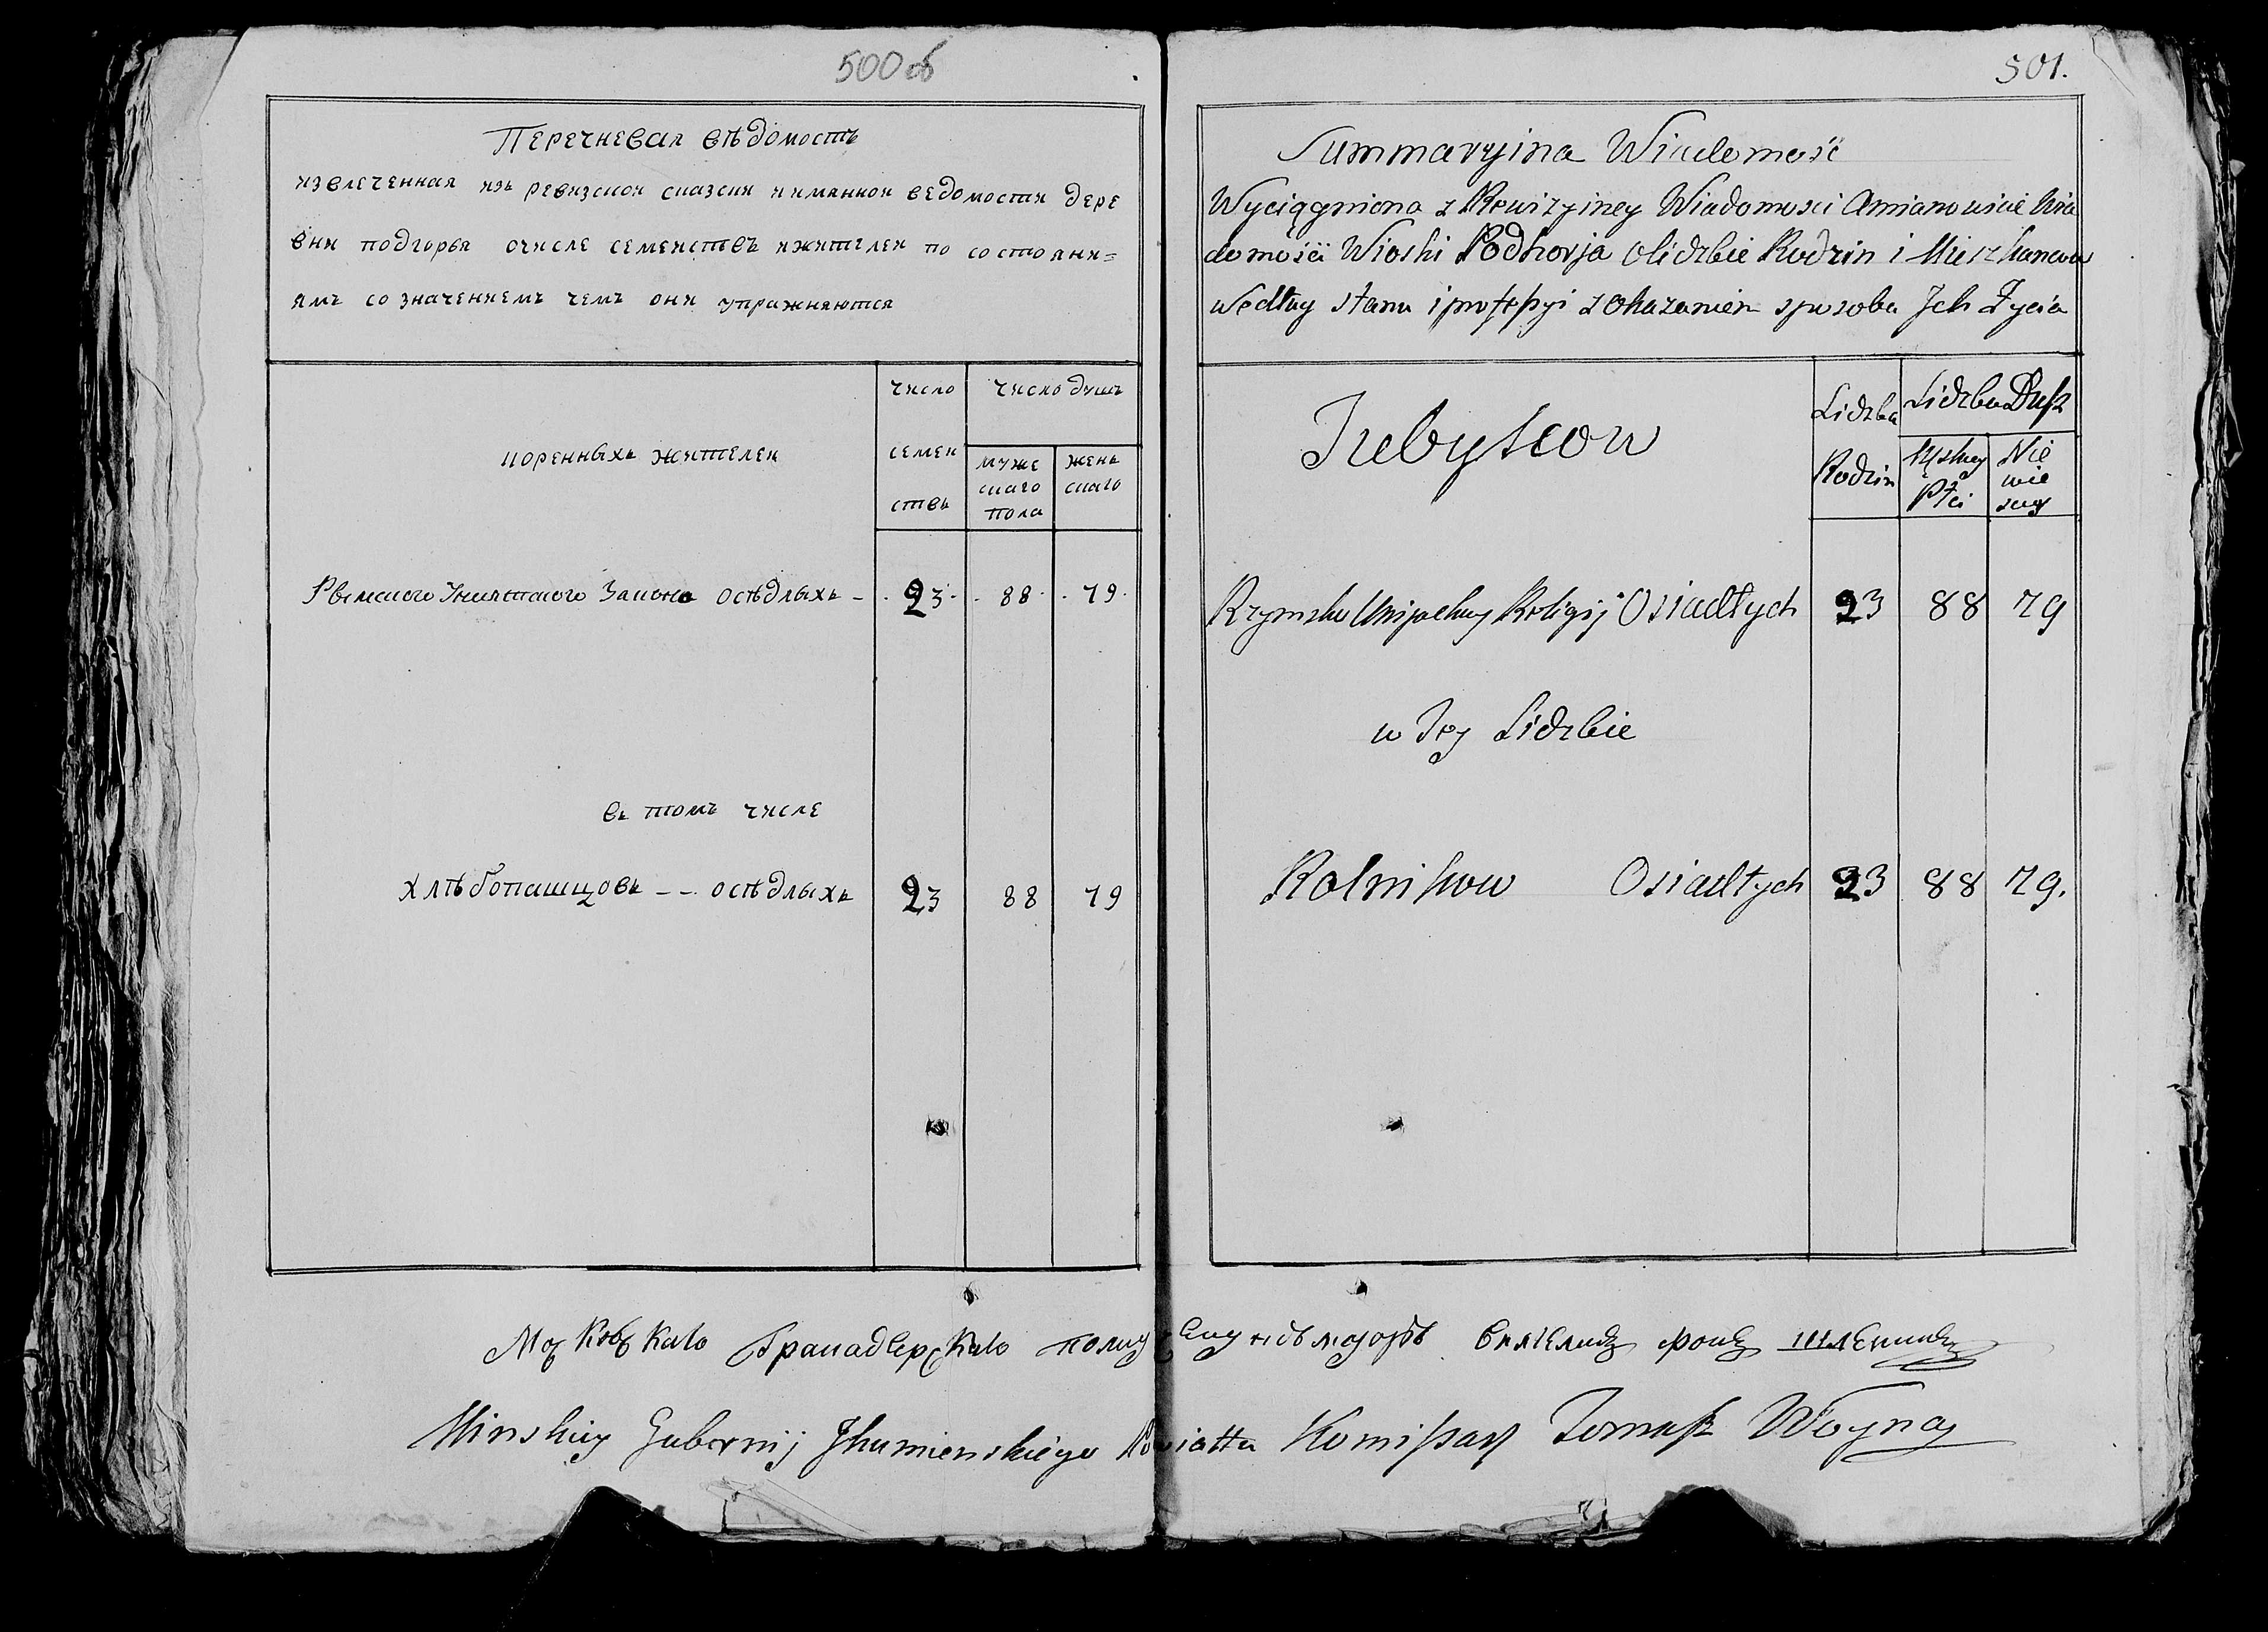 500об
Перечневая вѣдомость
извлеченная изъ ревизской сказски и имянной ведомости дере
вни подгорья очисле семействъ ижителей по состояни=
ямъ со значениемъ чемъ они упражняются
коренныхъ жителей
число
семей
ствъ
число душъ
муже
скаго
пола
жень
скаго
Рымского Униятского Закона осѣдлыхъ – 23 88 79
въ томъ числе
хлѣбопашцовъ – – осѣдлыхъ 23 88 79
501.
Summaryina Wiadomość
Wyciągniona z Rewizyiney Wiadomosci Amianowicie Wia
domości Wioski Podhorja Olidzbie Rodzin i Mieszkancow
według stanu i professyi z Okazaniem sposobu Jch Życia
Lidzba
Rodzin
Lidzba Dusz
Męskey
Płci
Nie
wie
scey
Rzymsko Unijackey Religij Osiadłych 23 88 79
w Tey Lidzbie
Rolnikow Osiadłych 23 88 79.
Московскаго Гранадерскаго полку
Minskiey Gubernij Jhumienskiego Powiattu Komissarz Tomasz Woyna